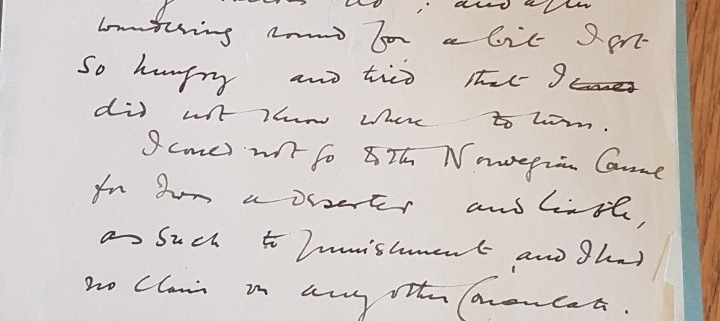 do ; and after
wandering round for a bit I got
so hungry and tired that I could
did not know where to turn.
I could not go to the Norwegian Consul
for I was a deserter and liable,
as such to punishment and I had
no claim on any other Consulate.